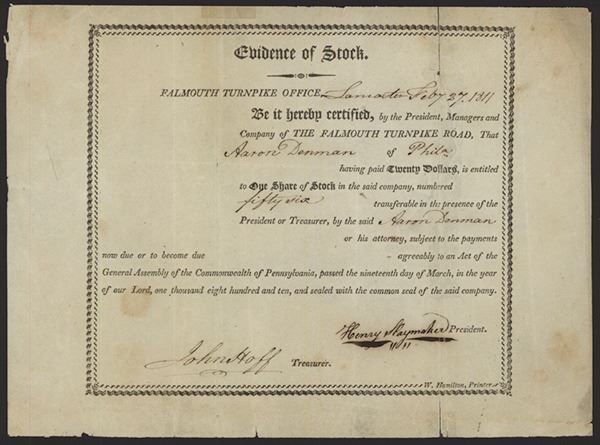 Evidence of Stock.
FALMOUTH TURNPIKE OFFICE, Lancaster Feby 27. 1811
Be it hereby certified, by the President, Managers and
Company of THE FALMOUTH TURNPIKE ROAD, That
Aaron Denman of Phila
having paid Twenty Dollars, is entitled
to One Share of Stock in the said company, numbered
fifty six transferable in the presence of the
President or Treasurer, by the said Aaron Denman
or his attorney, subject to the payments
now due or to become due agreeably to an Act of the
General Assembly of the Commonwealth of Pennsylvania, passed the nineteenth day of March, in the year
of our Lord, one thousand eight hundred and ten, and sealed with the common seal of the said company.
Henry Slaymaker President.
John Hoff Treasurer.
W. Hamilton, Printer.